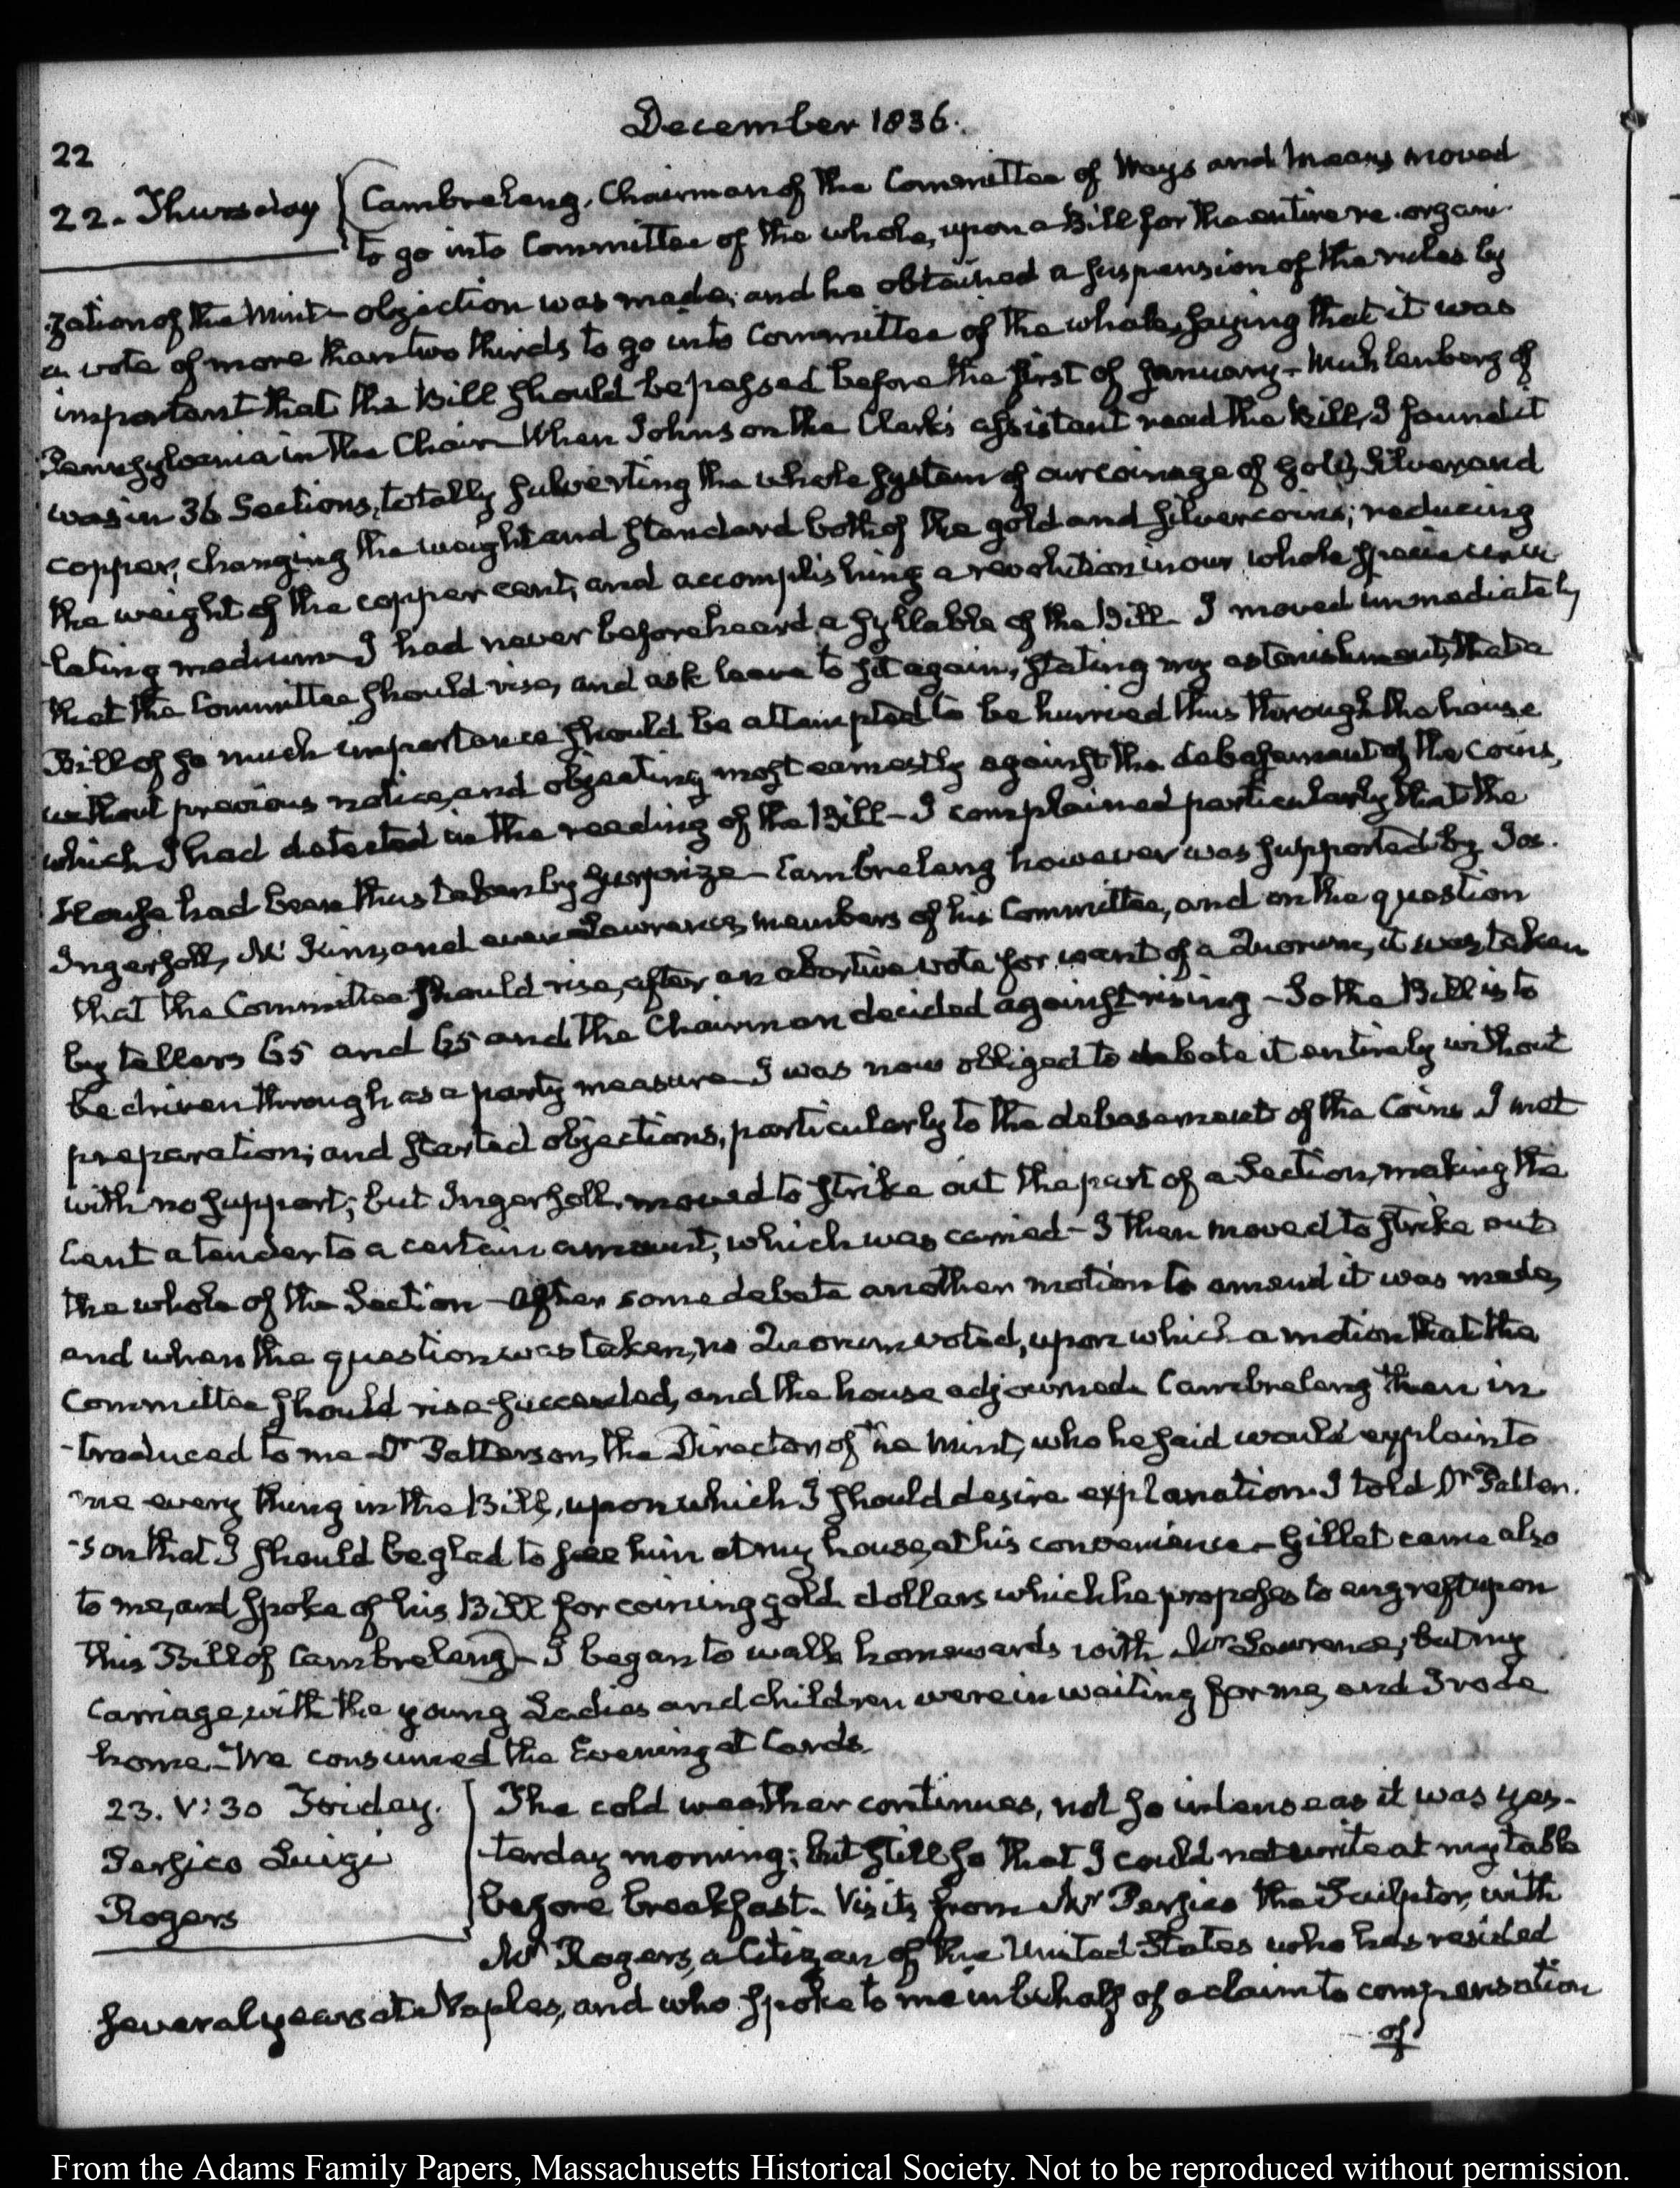 December 1836.
22
22. Thursday
Cambreleng, Chairman of the Committee of Ways and Means moved
to go into Committee of the whole, upon a Bill for the entire re-organi-
-zation of the Mint - objection was made; and he obtained a suspension of the rules by
a vote of more than two thirds to go into Committee of the whole, saying that it was
important that the Bill should be passed before the first of January - Muhlenberg of
Pennsylvania in the Chair - When Johnson the Clerk's assistant read the Bill, I found it
was in 36 Sections, totally subverting the whole system of our coinage of gold, Silver and
copper, changing the weight and standard both of the gold and silver coins; reducing
the weight of the copper cent, and accomplishing a revolution in our whole specie circu-
-lating medium - I had never before heard a syllable of the Bill - I moved immediately
that the Committee should rise, and ask leave to sit again, stating my astonishment, that a
Bill of so much importance should be attempted to be hurried thus through the house
without previous notice, and objecting most earnestly against the debasement of the Coins,
which I had detected in the reading of the Bill - I complained particularly that the
House had been thus taken by surprize - Cambreleng however was supported by Jos.
Ingersoll, McKim, and even Lawrence, members of his Committee, and on the question
that the Committee should rise, after an abortive vote for want of a Quorum, it was taken
by tellers 65 and 65 and the Chairman decided against rising - So the Bill is to
be driven through as a party measure - I was now obliged to debate it entirely without
preparation; and started objections, particularly to the debasement of the Coins I met
with no support; but Ingersoll moved to strike out the part of a Section, making the
Cent a tender to a certain amount, which was carried - I then moved to strike out
the whole of the Section - After some debate another motion to amend it was made,
and when the question was taken, no Quorum voted, upon which a motion that the
Committee should rise succeeded, and the house adjourned. Cambreleng then in
-troduced to me Dr Patterson, the Director of the Mint, who he said would explain to
me every thing in the Bill, upon which I should desire explanation. I told Dr Patter-
-son that I should be glad to see him at my house, at his convenience - Gillet came also
to me, and spoke of his Bill for coining gold dollars which he proposes to engraft upon
this Bill of Cambreleng - I began to walk homewards with Mr Lawrence; but my
Carriage with the young Ladies and children were in waiting for me, and I rode
home - We consumed the Evening at Cards.
23. V:30 Friday.
Persico Luigi
Rogers
The cold weather continues, not so intense as it was yes-
-terday morning; but still so that I could not write at my table
before breakfast - Visits from Mr Persico the Sculptor, with
Mr Rogers, a Citizen of the United States who has resided
several years at Naples, and who spoke to me in behalf of a claim to compensation
of
From the Adams Family Papers, Massachusetts Historical Society. Not to be reproduced without permission.